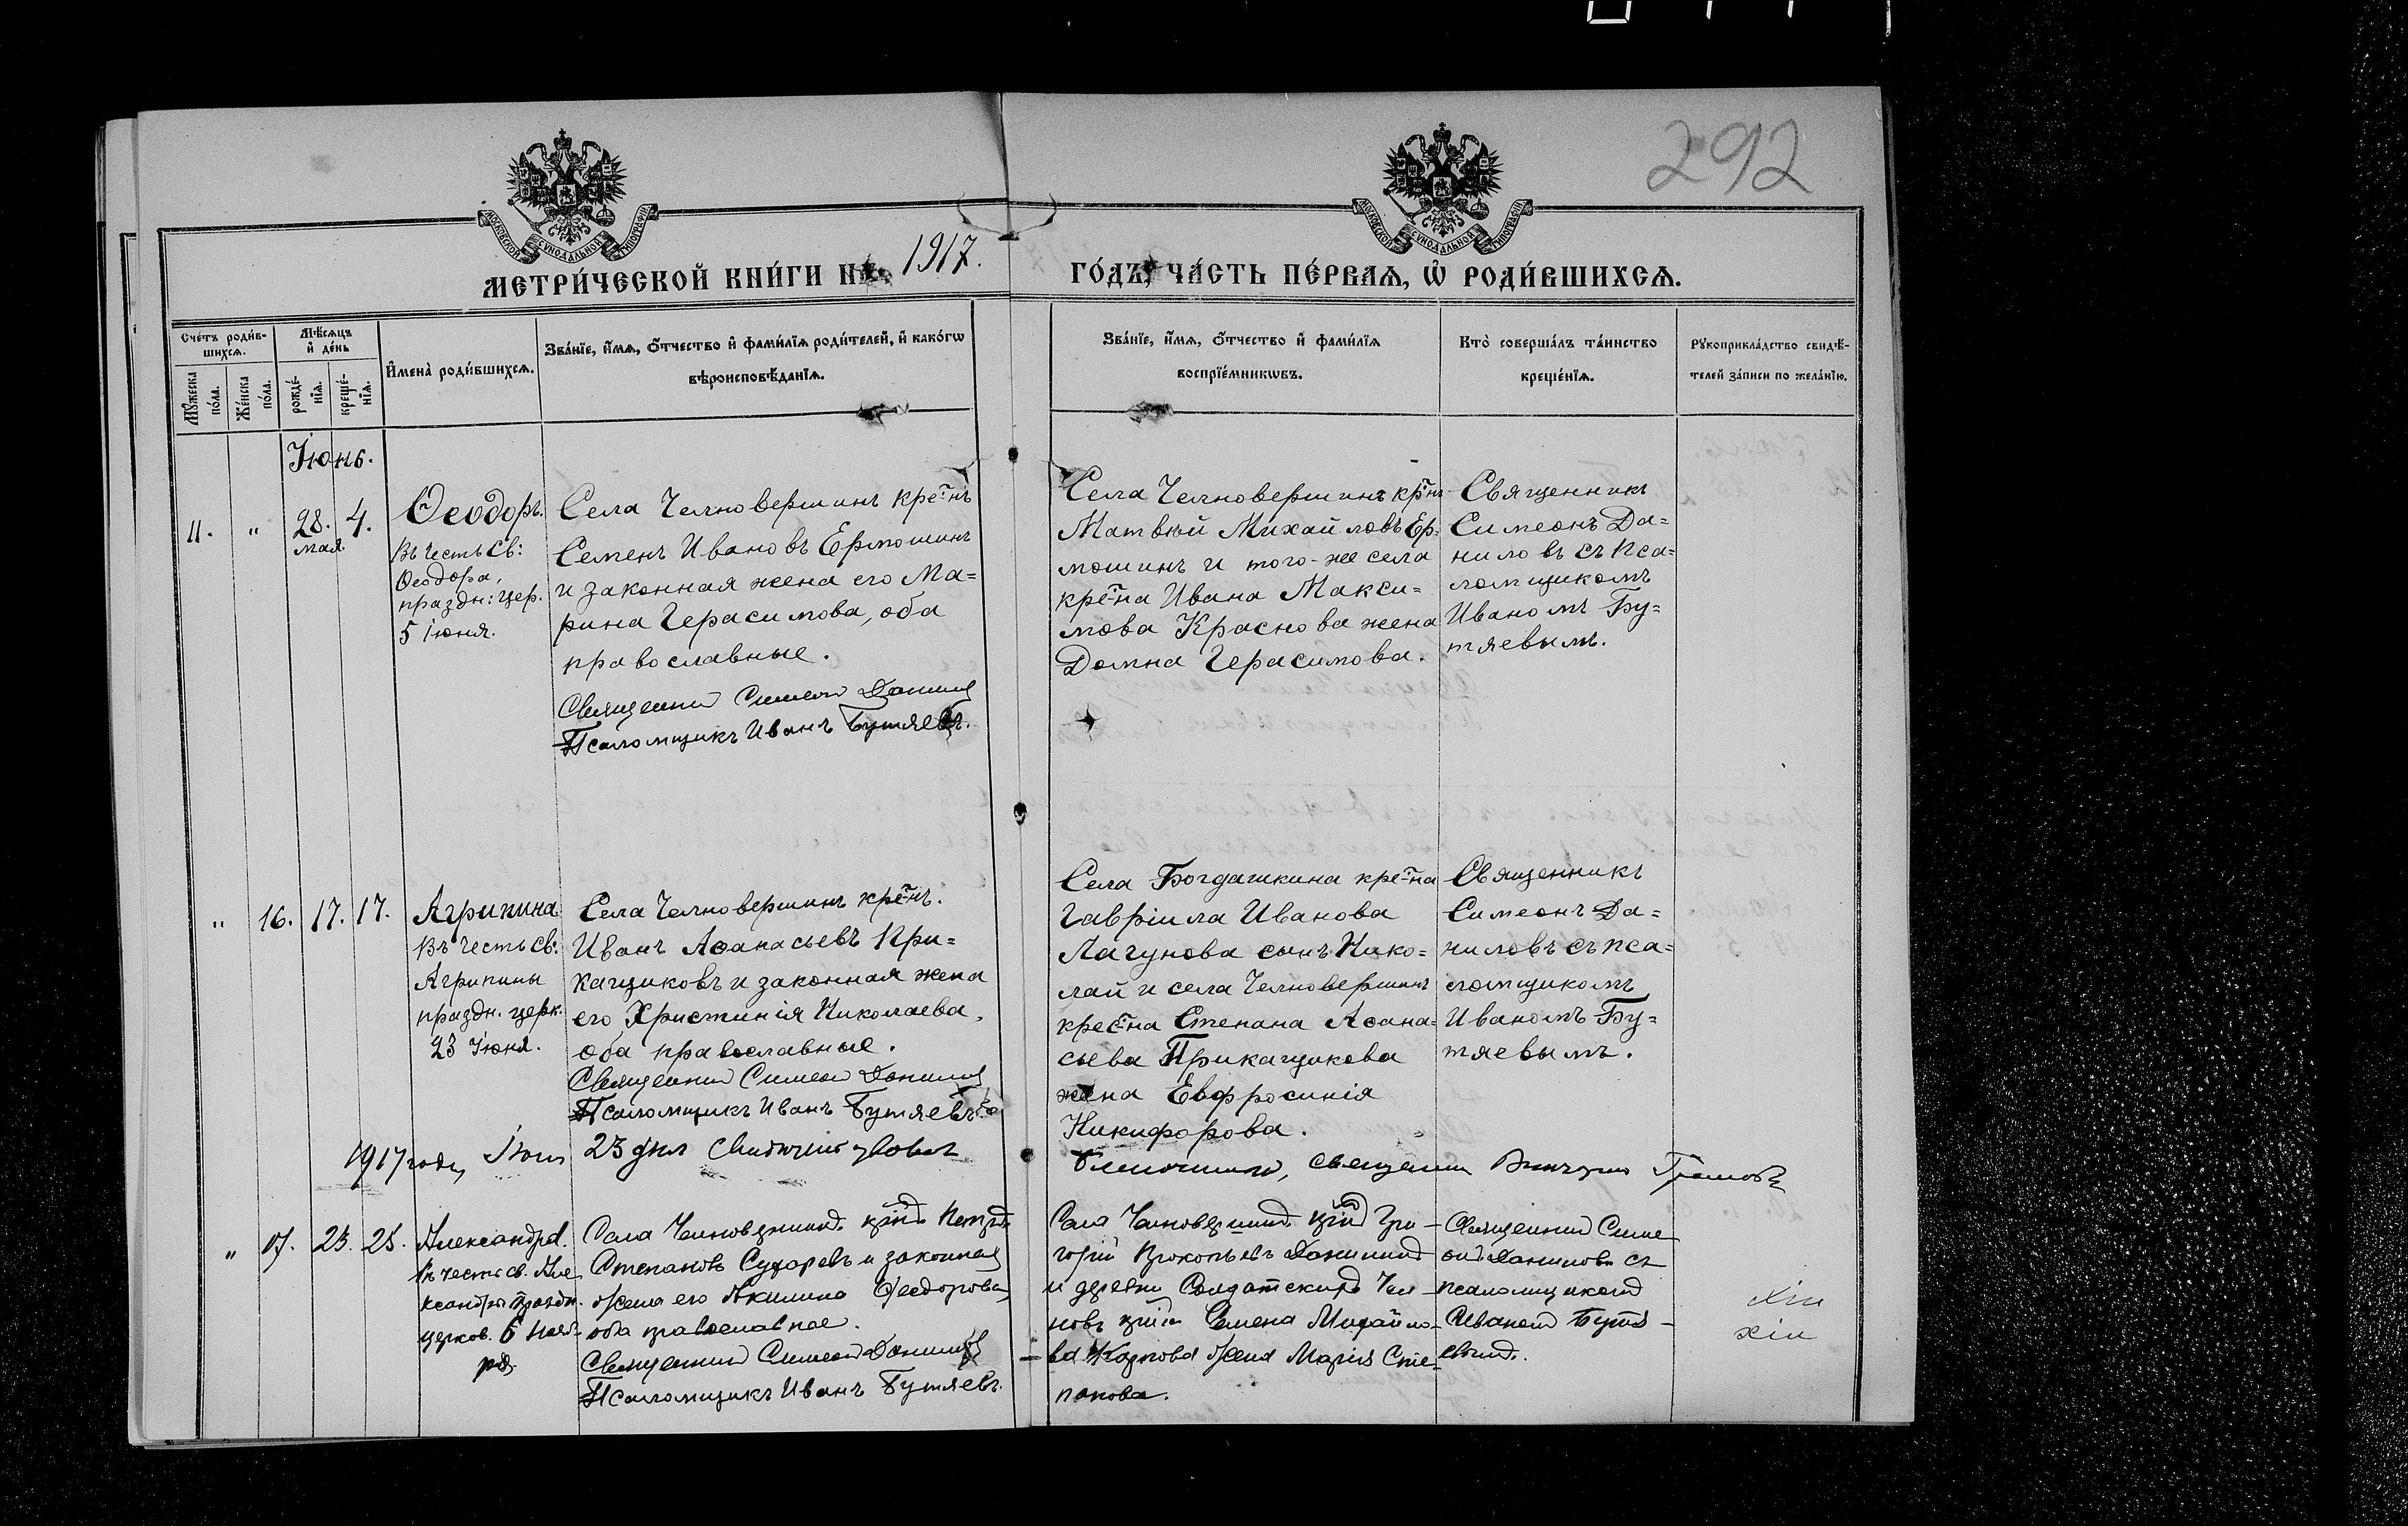 292
МОСКОВСКОЙ СУНОДАЛЬНОЙ ТИПОГРАФІИ
МОСКОВСКОЙ СУНОДАЛЬНОЙ ТИПОГРАФІИ
МЕТРИ́ЧЕСКОЙ КНИ́ГИ НА 1917. ГО́ДЪ, ЧА́СТЬ ПЕ́РВАѦ, Ѡ҆ РОДИ́ВШИХСѦ.
Сче́тъ роди́в-
шихсѧ.
Мꙋ́жеска
по́ла.
Же́нска
по́ла.
Мѣ́сѧцъ
и҆ де́нь
рожде́-
нїѧ.
креще́-
нїѧ.
И҆мена̀ роди́вшихсѧ.
Зва́нїе, и҆́мѧ, ѻ҆́тчество и҆ фами́лїѧ роди́телей, и҆ како́гѡ
вѣроисповѣ́данїѧ.
Зва́нїе, и҆́мѧ, ѻ҆́тчество и҆ фами́лїѧ
воспрїе́мникѡвъ.
Кто̀ соверша́лъ та́инство
креще́нїѧ.
Рꙋкоприкла́дство свидѣ́-
телей за́писи по жела́нїю.
Іюнь.
11. " 28. 4.
мая.
Ѳеодоръ.
Въ честь св:
Ѳеодора,
праздн: цер.
5 іюня.
Села Челновершинъ кре-нъ
Семенъ Ивановъ Ермошинъ
и законная жена его Ма=
рина Герасимова, оба
православные.
Священник Симеон Данилов
Псаломщикъ Иванъ Бутяевъ.
Села Челновершинъ кр-нъ
Матвѣй Михайловъ Ер=
мошинъ и того-же села
кре-на Ивана Макси=
мова Краснова жена
Домна Герасимова.
Священникъ
Симеонъ Да=
ниловъ съ пса=
ломщикомъ
Иваномъ Бу=
тяевымъ.
" 16. 17. 17.
Агрипина
Въ честь св:
Агрипины
праздн. церк.
23 Іюня.
Села Челновершинъ кре-нъ.
Иванъ Аѳанасьевъ При=
кащиковъ и законная жена
его Христинія Николаева,
оба православные.
Священник Симеон Данилов
Псаломщикъ Иванъ Бутяевъ
Села Богдашкина кре-на
Гавріила Иванова
Лагунова сынъ Нико=
лай и села Челновершинъ
крес-на Степана Аѳана=
сьева Прикащикова
жена Евфросинія
Никифорова.
Священникъ
Симеонъ Да=
ниловъ съ пса=
ломщикомъ
Иваномъ Бу=
тяевымъ.
1917 года, Іюня 23 дня священник
" 17. 23. 25.
Александра.
Въ честь св. Але
ксандры праздн.
церков. 6 нояб-
ря.
Села Челновершинъ кр-нъ Петръ
Степановъ Сухаревъ и законная
жена его Акилина Ѳеодорова,
оба православные.
Священник Симеон Данилов
Псаломщикъ Иванъ Бутяевъ.
Села Челновершинъ кр-нъ Гри-
горій Прокопьевъ Данилинъ
и деревни Солдатскихъ Чел-
новъ кр-на Семена Михайло-
ва Карпова жена Марія Сте-
панова.
Священник Симе
онъ Даниловъ съ
псаломщикомъ
Иваномъ Бутя-
евымъ.